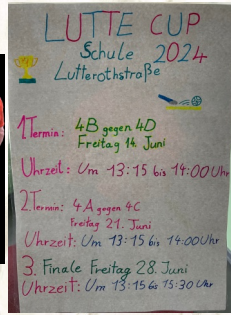 LUTTE CUP
Schule 2024
Lutterothstraße
1.Termin: 4B gegen 4D
Freitag 14. Juni
Uhrzeit: Um 13:15 bis 14:00 Uhr
2.Termin: 4A gegen 4C
Freitag 21. Juni
Uhrzeit: Um 13:15 bis 14:00 Uhr
3. Finale Freitag 28. Juni
Uhrzeit: Um 13:15 bis 15:30 Uhr